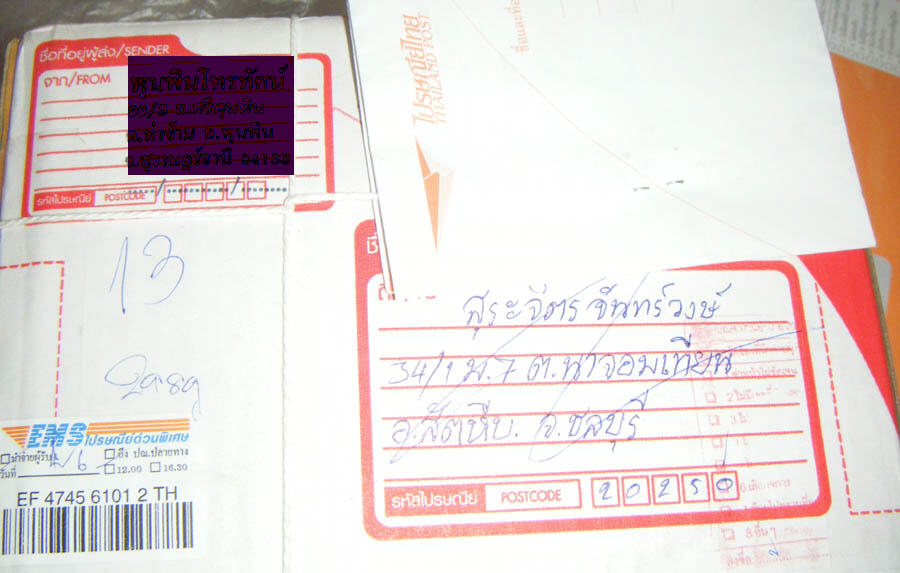 ชื่อที่อยู่ผู้ส่ง/SENDER
จาก/FROM
พุนพินโทรทัศน์
ต.ท่าข้าม อ.พุนพิน
จ.สุราษฎร์ธานี 84130
รหัสไปรษณีย์ POSTCODE
ไปรษณีย์ไทย
THAILAND POST
13
สุระจิตร จันทร์วงษ์
34/1 ม.7 ต.นาจอมเทียน
อ.สัตหีบ. จ.ชลบุรี
รหัสไปรษณีย์ POSTCODE 20250
EMS ไปรษณีย์ด่วนพิเศษ
นำจ่ายผู้รับ ถึง ปณ.ปลายทาง
วันที่ 12.00 16.30
EF 4745 6101 2 TH